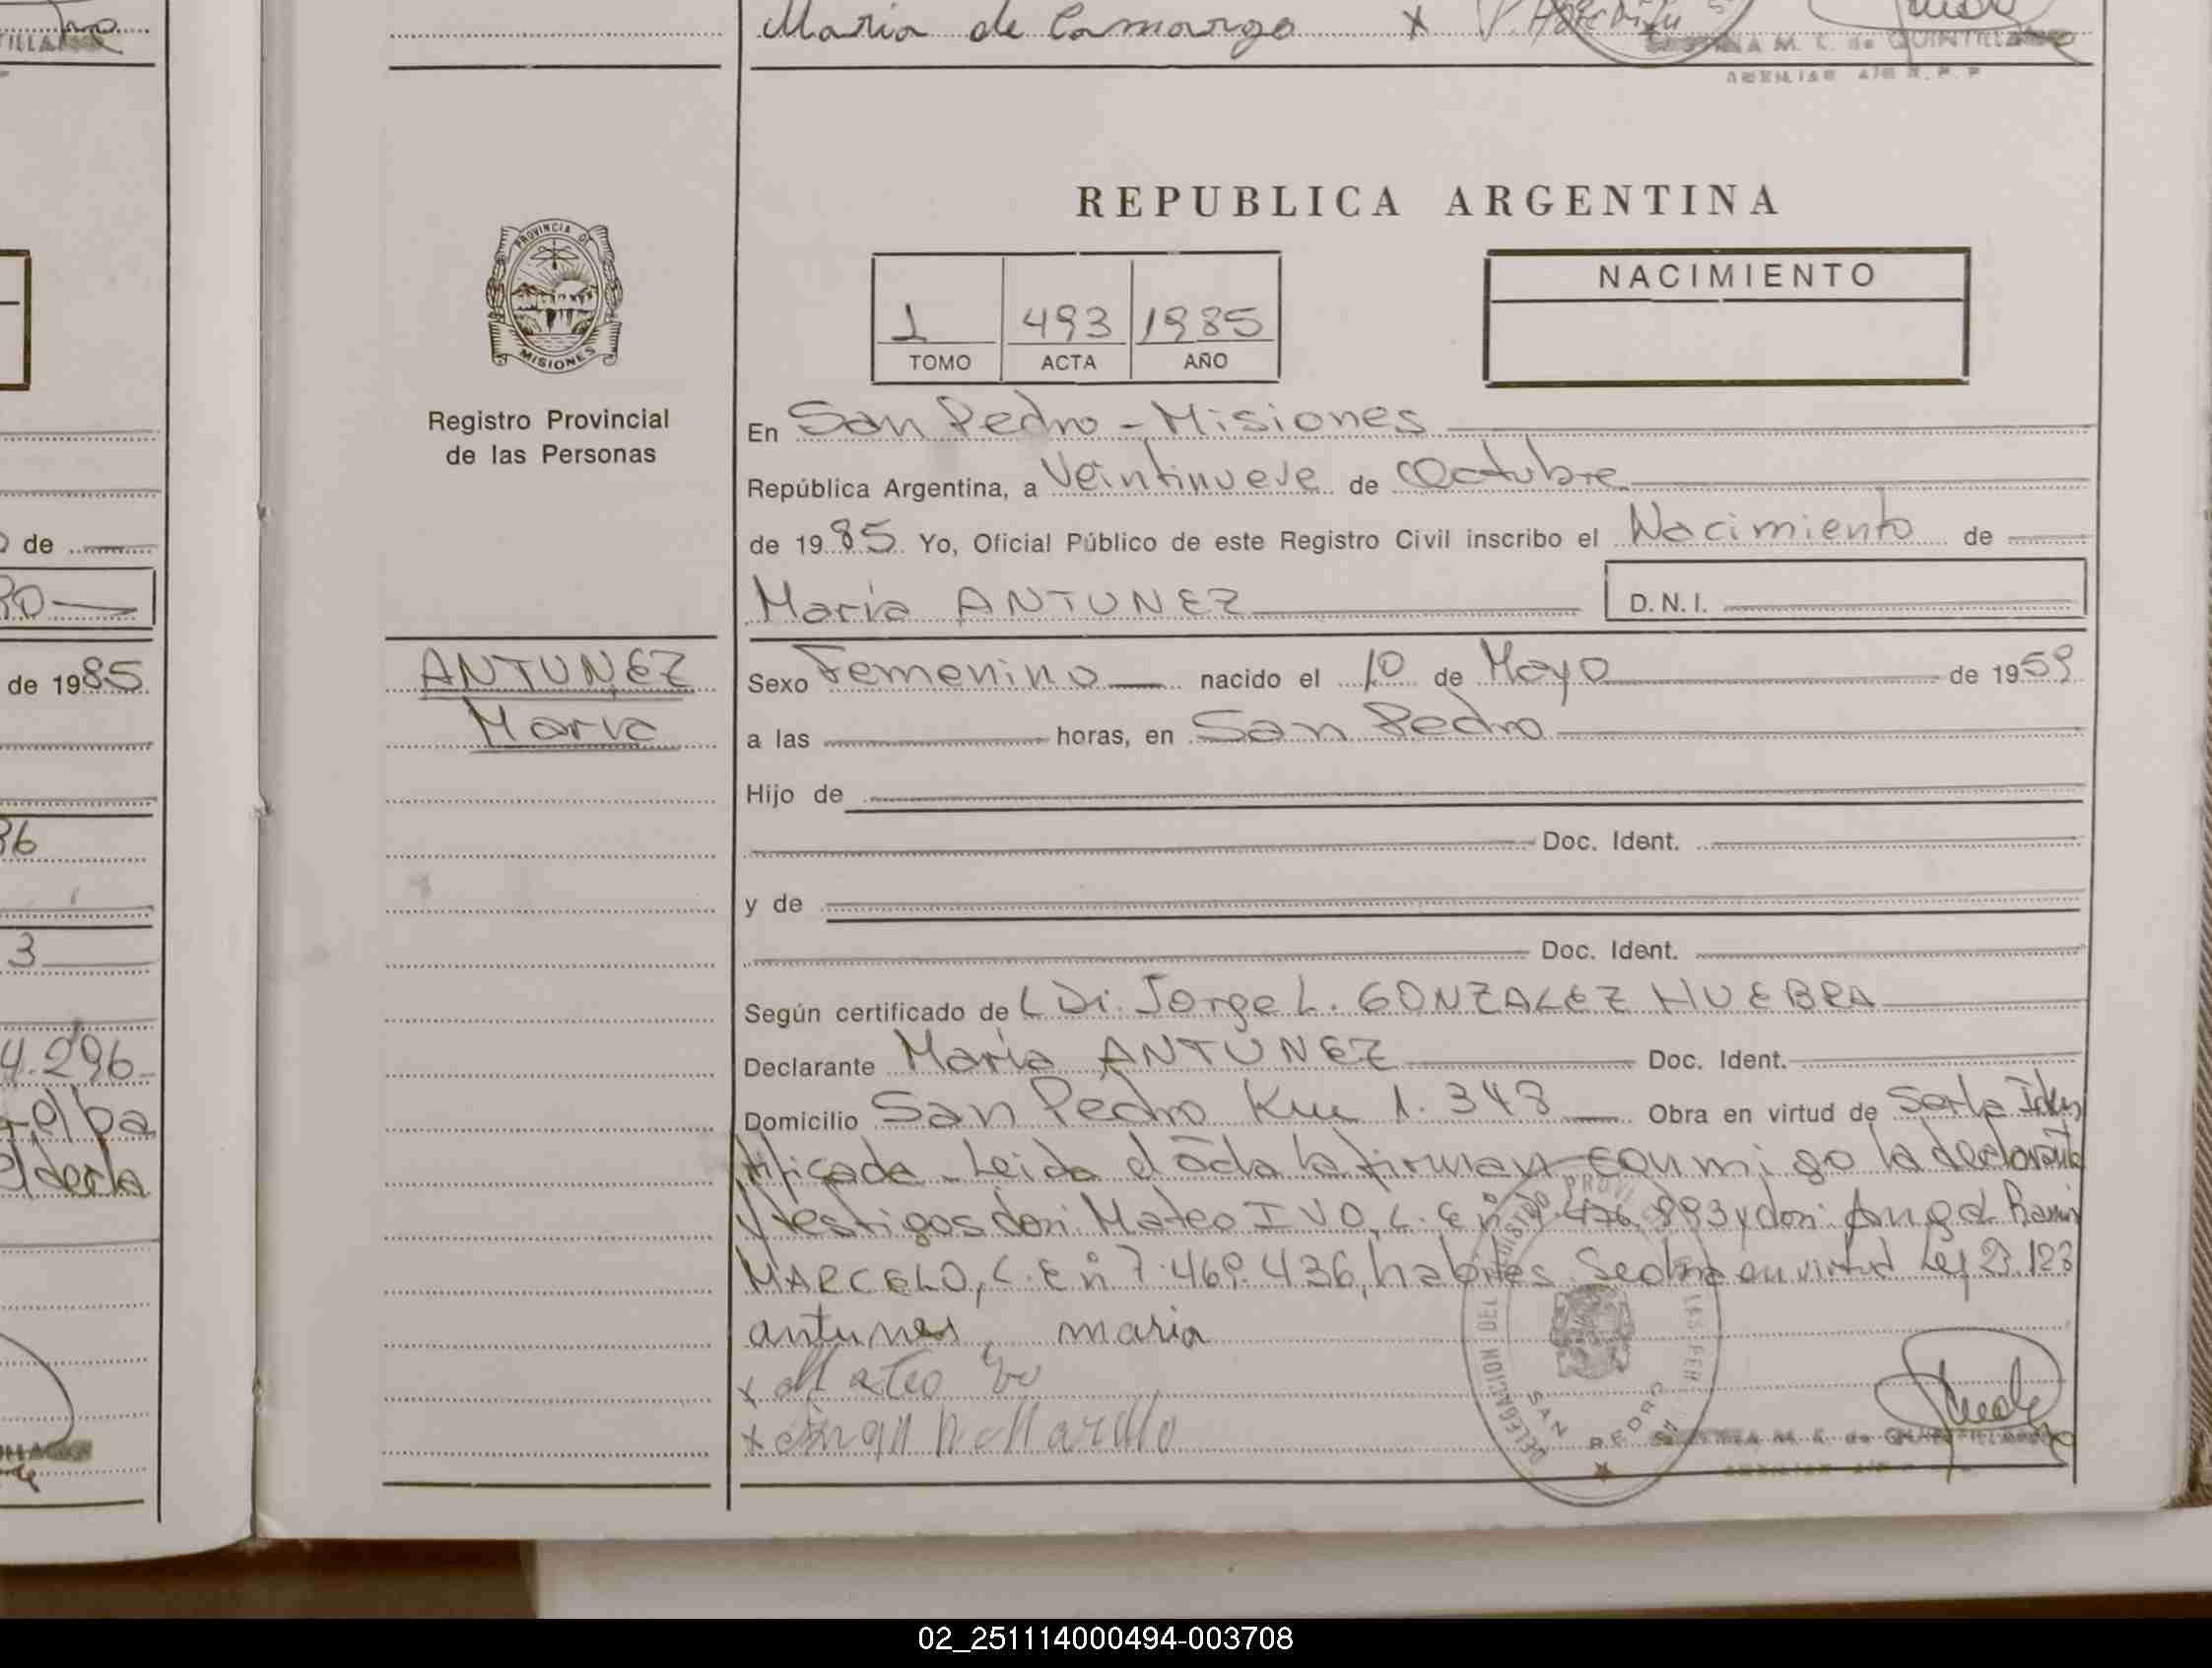 Maria de Camargo x
M. L. de QUINTILLANO
AUXILIAR A/C R. P. P
REPUBLICA ARGENTINA
PROVINCIA DE
MISIONES
Registro Provincial
de las Personas
1 493 1985
TOMO ACTA AÑO
NACIMIENTO
En San Pedro - Misiones
República Argentina, a Veintinueve de Octubre
de 1985 Yo, Oficial Público de este Registro Civil inscribo el Nacimiento de
María ANTUNEZ D.N.I.
ANTUNEZ
María
Sexo Femenino nacido el 10 de Mayo de 1959
a las horas, en San Pedro
Hijo de
Doc. Ident.
y de
Doc. Ident.
Según certificado de Jorge L. GONZALEZ HUEBRA
Declarante María ANTUNEZ Doc. Ident.
Domicilio San Pedro Km 1.348 Obra en virtud de Serla Iden
tificada - Leida el acta la firman conmigo la declarante
y testigos don: Mateo IVO, L. E nº 7.476.893 y don: Angel Ramón
MARCELO, L. E nº 7.469.436, habiles. Se obra en virtud Ley 23.123
antunes maria
x Mateo Ivo
x
DELEGACION DEL
SAN PEDRO
M. L. de QUINTILLANO
de
80
de 1985
86
3
4.296
elba
02_251114000494-003708